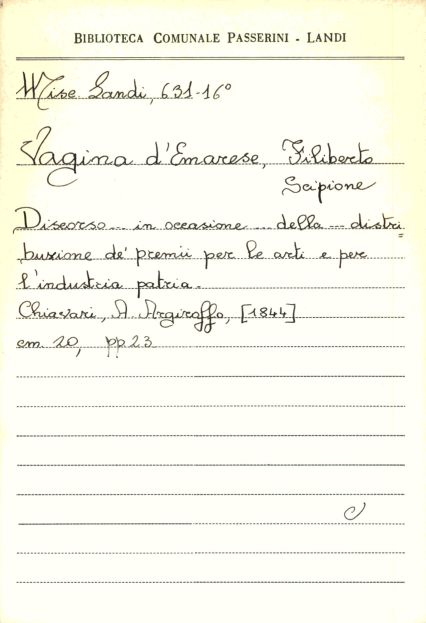 BIBLIOTECA COMUNALE PASSERINI - LANDI
Misc. Landi, 631-16°
Vagina d'Emarese, Filiberto
Scipione
Discorso ... in occasione ... della ... distri=
buzione de' premii per le arti e per
l'industria patria.
Chiavari, A. Argiroffo, [1844]
cm. 20, pp. 23